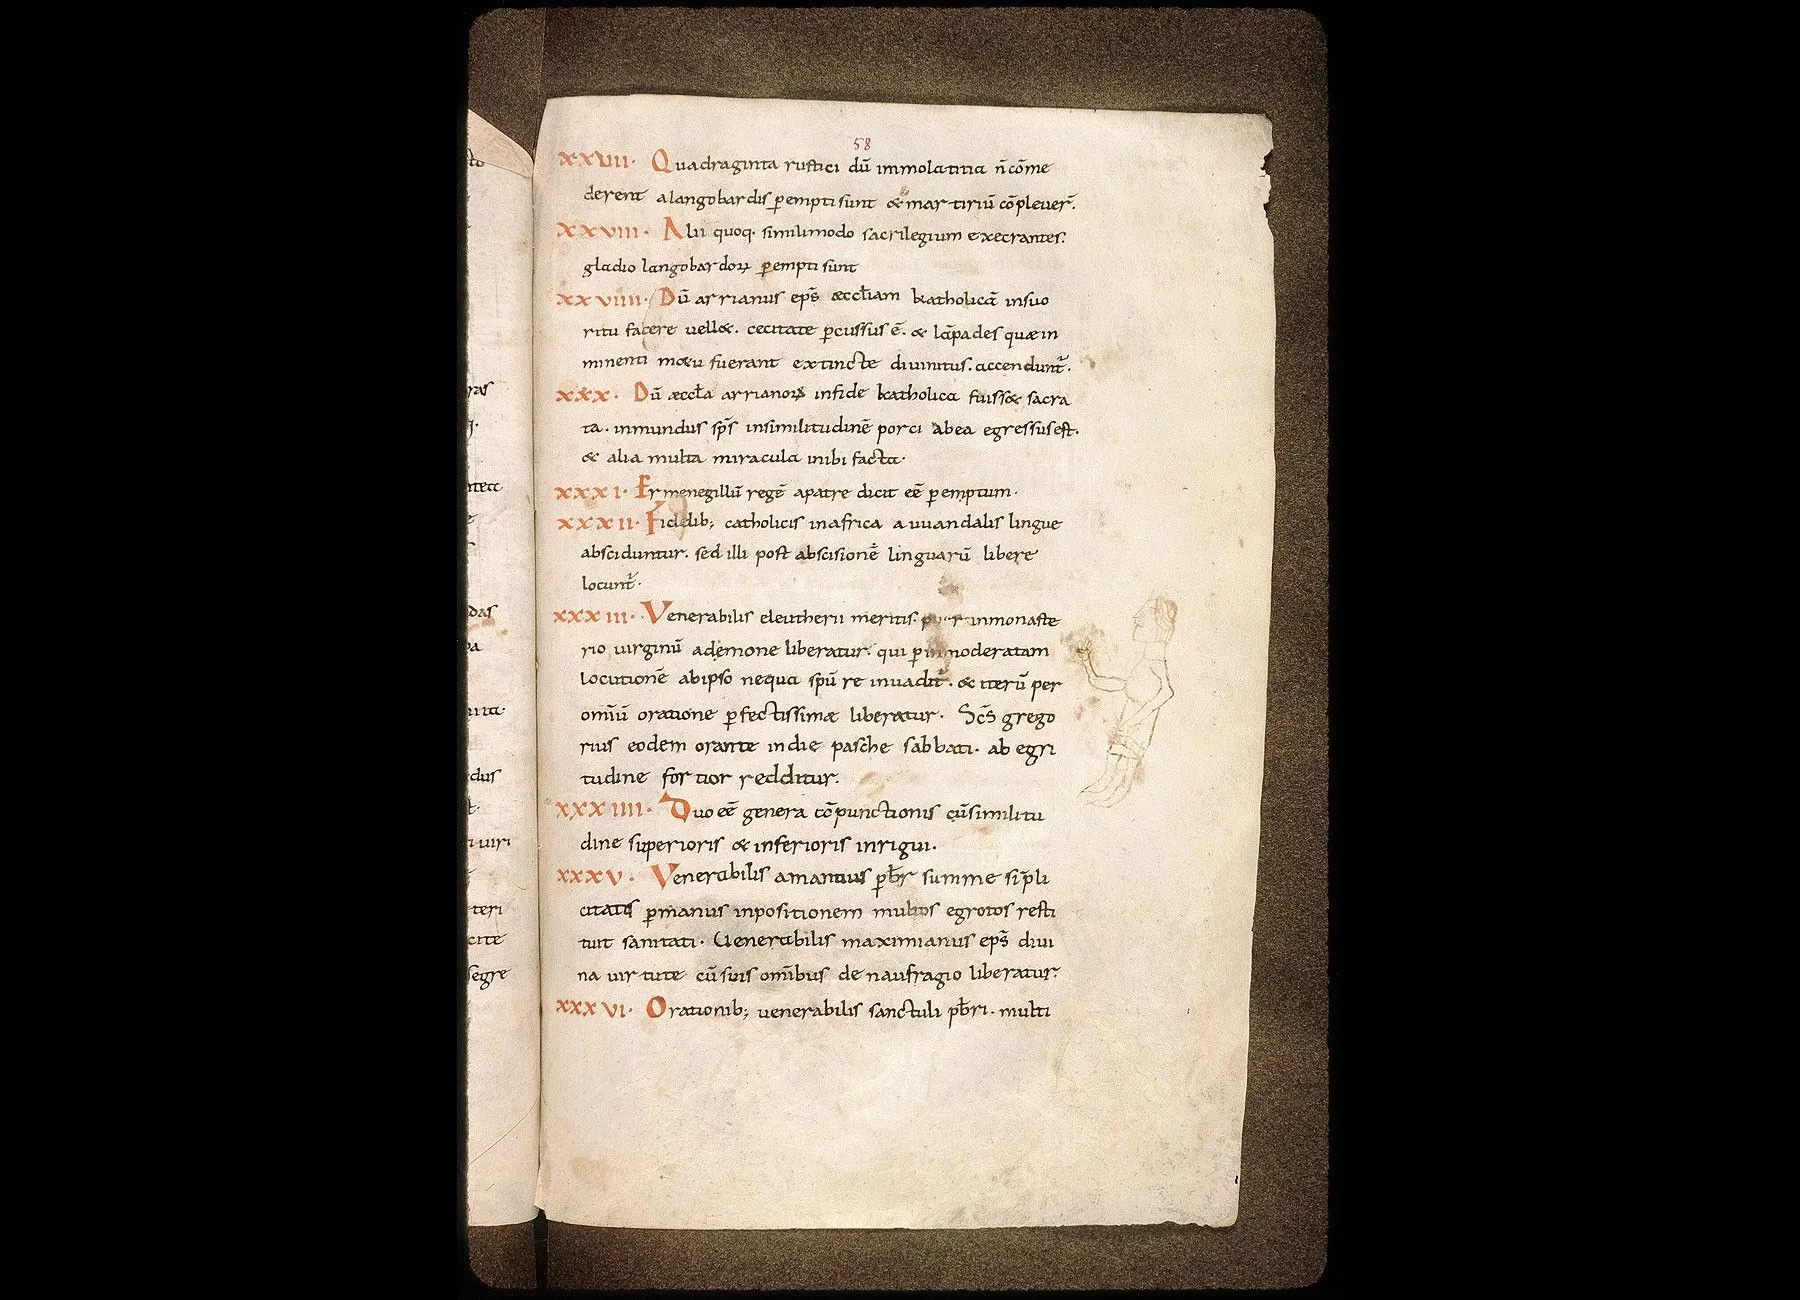 58
XXVII. Quadraginta rustici dū immolaticia n̄ cōme
derent a langobardis ꝑempti sunt & martiriū cōpleuer̄.
XXVIII. Alii quoq. simili modo sacrilegium execrantes.
gladio langobardoꝝ ꝑempti sunt
XXVIIII. Dū arrianus ep̄s æccl̄iam katholicā in suo
ritu facere uell&. cecitate ꝑcussus ē. & lāpades quæ in
minenti metu fuerant extincte diuinitus. accendunt̄.
XXX. Dū æccl̄a arrianoꝝ in fide katholica fuiss& sacra
ta. inmundus sp̄s in similitudinē porci ab ea egressus est.
& alia multa miracula inibi facta.
XXXI. Ermenegillū regē a patre dicit eē ꝑemptum.
XXXII. Fidelib; catholicis in africa a uuandalis lingue
absciduntur. sed illi post abscisionē linguarū libere
locunt̄.
XXXIII. Venerabilis eleutherii meritis. puer in monaste
rio uirginū a demone liberatur. qui ꝑ inmoderatam
locutionē ab ipso nequa sp̄u re inuadit̄. & iterū per
omiū oratione ꝑfectissimæ liberatur. Sc̄s grego
rius eodem orante in die pasche sabbati. ab egri
tudine fortior redditur.
XXXIIII. Duo eē genera cōpunctionis cū similitu
dine superioris & inferioris inrigui.
XXXV. Venerabilis amantius p̄br summe sīpli
citatis ꝑ manus inpositionem multos egrotos resti
tuit sanitati. Uenerabilis maximianus ep̄s diui
na uirtute cū suis omībus de naufragio liberatur.
XXXVI. Orationib; uenerabilis sanctuli p̄bri. multi